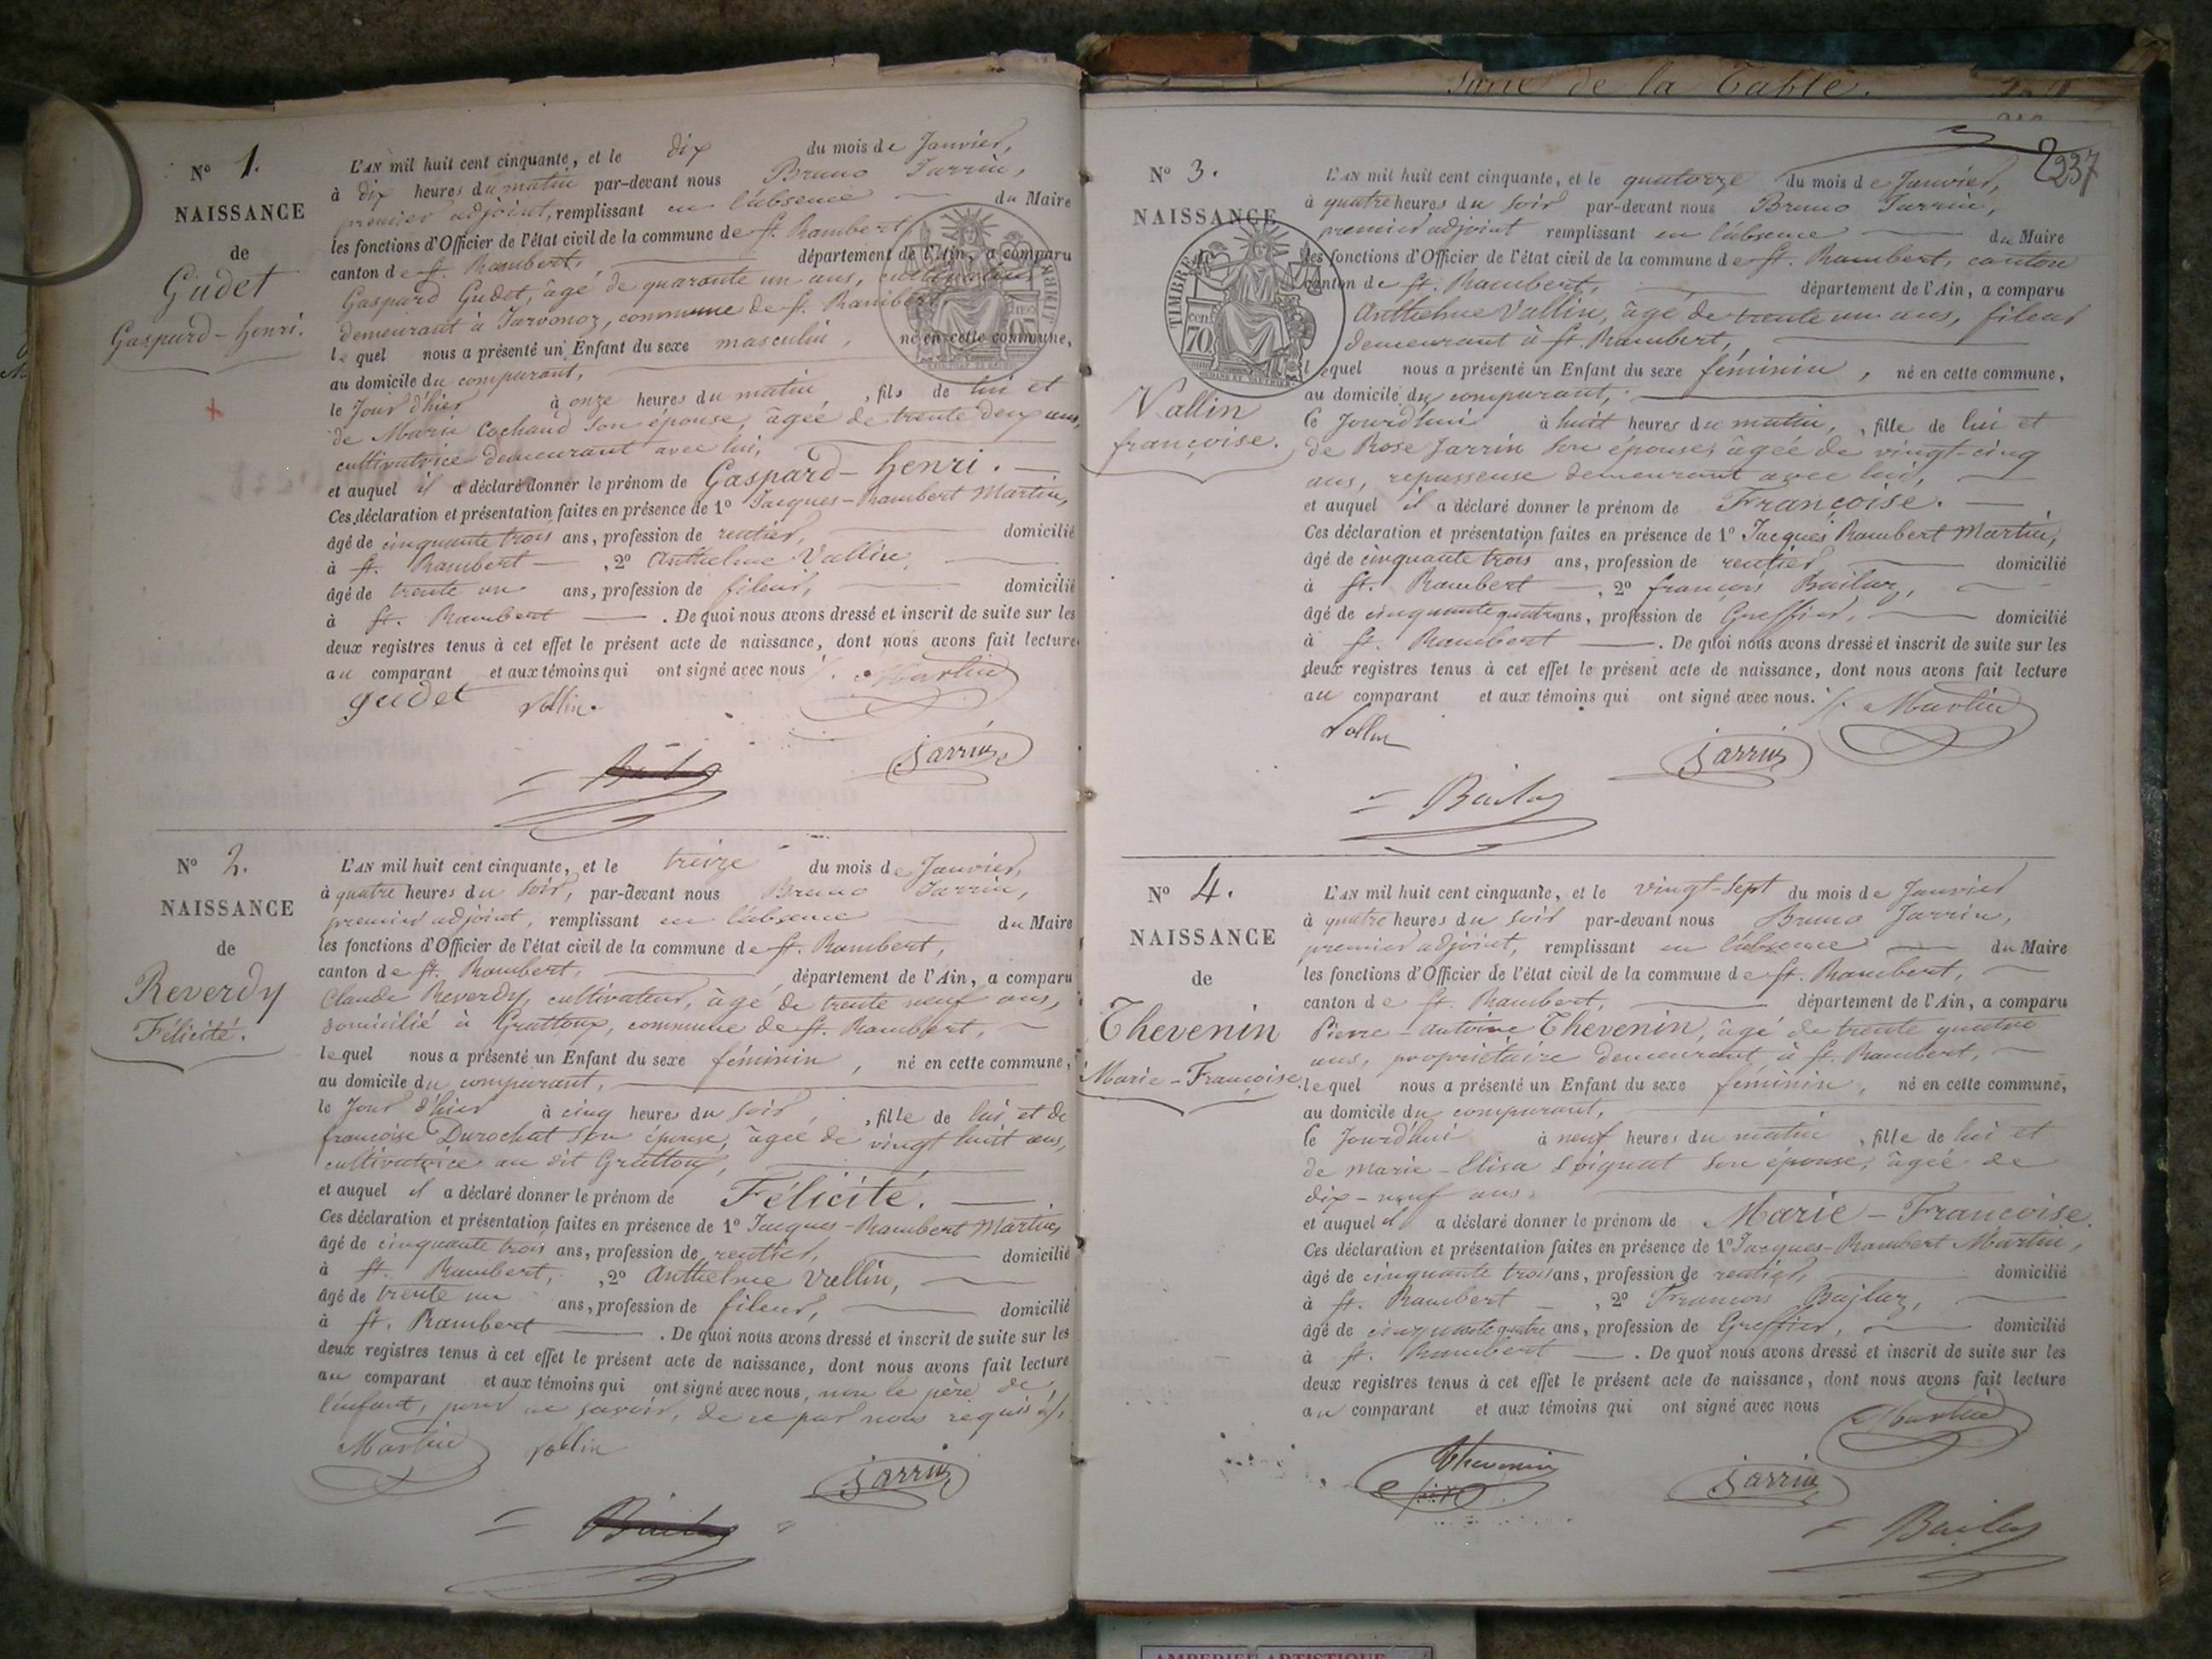 N° 1.
NAISSANCE
de
Gudet
Gaspard-henri.
L'AN mil huit cent cinquante, et le dix du mois de Janvier,
à dix heures du matin par-devant nous Bruno Jarrin,
premier adjoint, remplissant en l'absence du Maire
les fonctions d'Officier de l'état civil de la commune de St. Rambert,
canton de St. Rambert, département de l'Ain, a comparu
Gaspard Gudet, âgé de quarante un ans,
demeurant à Javonoz, commune de St. Rambert
lequel nous a présenté un Enfant du sexe masculin, né en cette commune,
au domicile du comparant,
le Jour d'hier à onze heures du matin, fils de lui et
de Marie Cochaud son épouse, âgée de trente deux ans,
cultivatrice demeurant avec lui,
et auquel il a déclaré donner le prénom de Gaspard-henri.
Ces déclaration et présentation faites en présence de 1° Jacques-Rambert Martin,
âgé de cinquante trois ans, profession de rentier, domicilié
à St. Rambert, 2° Anthelme Vallin,
âgé de trente un ans, profession de fileur, domicilié
à St. Rambert. De quoi nous avons dressé et inscrit de suite sur les
deux registres tenus à cet effet le présent acte de naissance, dont nous avons fait lecture
au comparant et aux témoins qui ont signé avec nous ./. Martin
gudet Vallin.
Jarrin
N° 2.
NAISSANCE
de
Reverdy
Félicité.
L'AN mil huit cent cinquante, et le treize du mois de Janvier,
à quatre heures du soir, par-devant nous Bruno Jarrin,
premier adjoint, remplissant en l'absence du Maire
les fonctions d'Officier de l'état civil de la commune de St. Rambert,
canton de St. Rambert, département de l'Ain, a comparu
Claude Reverdy, cultivateur, âgé de trente neuf ans,
domicilié à Grattoux, commune de St. Rambert,
lequel nous a présenté un Enfant du sexe féminin, né en cette commune,
au domicile du comparant,
le Jour d'hier à cinq heures du soir, fille de lui et de
françoise Durochat son épouse, âgée de vingt huit ans,
cultivatrice au dit Grattoux,
et auquel il a déclaré donner le prénom de Félicité.
Ces déclaration et présentation faites en présence de 1° Jacques-Rambert Martin,
âgé de cinquante trois ans, profession de rentier, domicilié
à St. Rambert, 2° Anthelme Vallin,
âgé de trente un ans, profession de fileur, domicilié
à St. Rambert. De quoi nous avons dressé et inscrit de suite sur les
deux registres tenus à cet effet le présent acte de naissance, dont nous avons fait lecture
au comparant et aux témoins qui ont signé avec nous, non le père de
l'enfant, pour ne savoir, de ce par nous requis ./.
Martin Vallin
Jarrin
de la Table.
237
N° 3.
NAISSANCE
TIMBRE
70
Vallin
françoise.
L'AN mil huit cent cinquante, et le quatorze du mois de Janvier,
à quatre heures du soir par-devant nous Bruno Jarrin,
premier adjoint remplissant en l'absence du Maire
les fonctions d'Officier de l'état civil de la commune de St. Rambert, canton
canton de St. Rambert, département de l'Ain, a comparu
Anthelme Vallin, âgé de trente un ans, fileur
demeurant à St. Rambert,
lequel nous a présenté un Enfant du sexe féminin, né en cette commune,
au domicile du comparant,
ce Jourd'hui à huit heures du matin, fille de lui et
de Rose Jarrin son épouse, âgée de vingt-cinq
ans, repasseuse demeurant avec lui,
et auquel il a déclaré donner le prénom de Françoise.
Ces déclaration et présentation faites en présence de 1° Jacques Rambert Martin,
âgé de cinquante trois ans, profession de rentier domicilié
à St. Rambert, 2° françois Bailaz,
âgé de cinquante quatre ans, profession de Greffier, domicilié
à St. Rambert. De quoi nous avons dressé et inscrit de suite sur les
deux registres tenus à cet effet le présent acte de naissance, dont nous avons fait lecture
au comparant et aux témoins qui ont signé avec nous. ./. Martin
Vallin
Jarrin
Bailaz
N° 4.
NAISSANCE
de
Thevenin
Marie-Françoise.
L'AN mil huit cent cinquante, et le vingt-sept du mois de Janvier
à quatre heures du soir par-devant nous Bruno Jarrin,
premier adjoint, remplissant en l'absence du Maire
les fonctions d'Officier de l'état civil de la commune de St. Rambert,
canton de St. Rambert, département de l'Ain, a comparu
Pierre-antoine Thevenin, âgé de trente quatre
ans, propriétaire demeurant à St. Rambert,
lequel nous a présenté un Enfant du sexe féminin, né en cette commune,
au domicile du comparant,
ce Jourd'hui à neuf heures du matin, fille de lui et
de Marie-Elisa Loignat son épouse, âgée de
dix-neuf ans.
et auquel il a déclaré donner le prénom de Marie-Françoise.
Ces déclaration et présentation faites en présence de 1° Jacques-Rambert Martin,
âgé de cinquante trois ans, profession de rentier, domicilié
à St. Rambert, 2° François Bailaz,
âgé de cinquante quatre ans, profession de Greffier, domicilié
à St. Rambert. De quoi nous avons dressé et inscrit de suite sur les
deux registres tenus à cet effet le présent acte de naissance, dont nous avons fait lecture
au comparant et aux témoins qui ont signé avec nous Martin
Thevenin Jarrin
Bailaz
AMBERIEU ARTISTIQUE